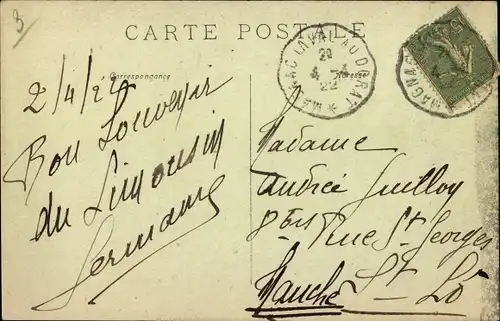 3
CARTE POSTALE
Correspondance
Adresse
MAGNAC LAVAL AU DORAT
22
MAGNA
2/4/22
Bon Souvenir
du Limousin
Germaine
Madame
Andrée Guilloy
Rue St Georges
St Lô
Manche